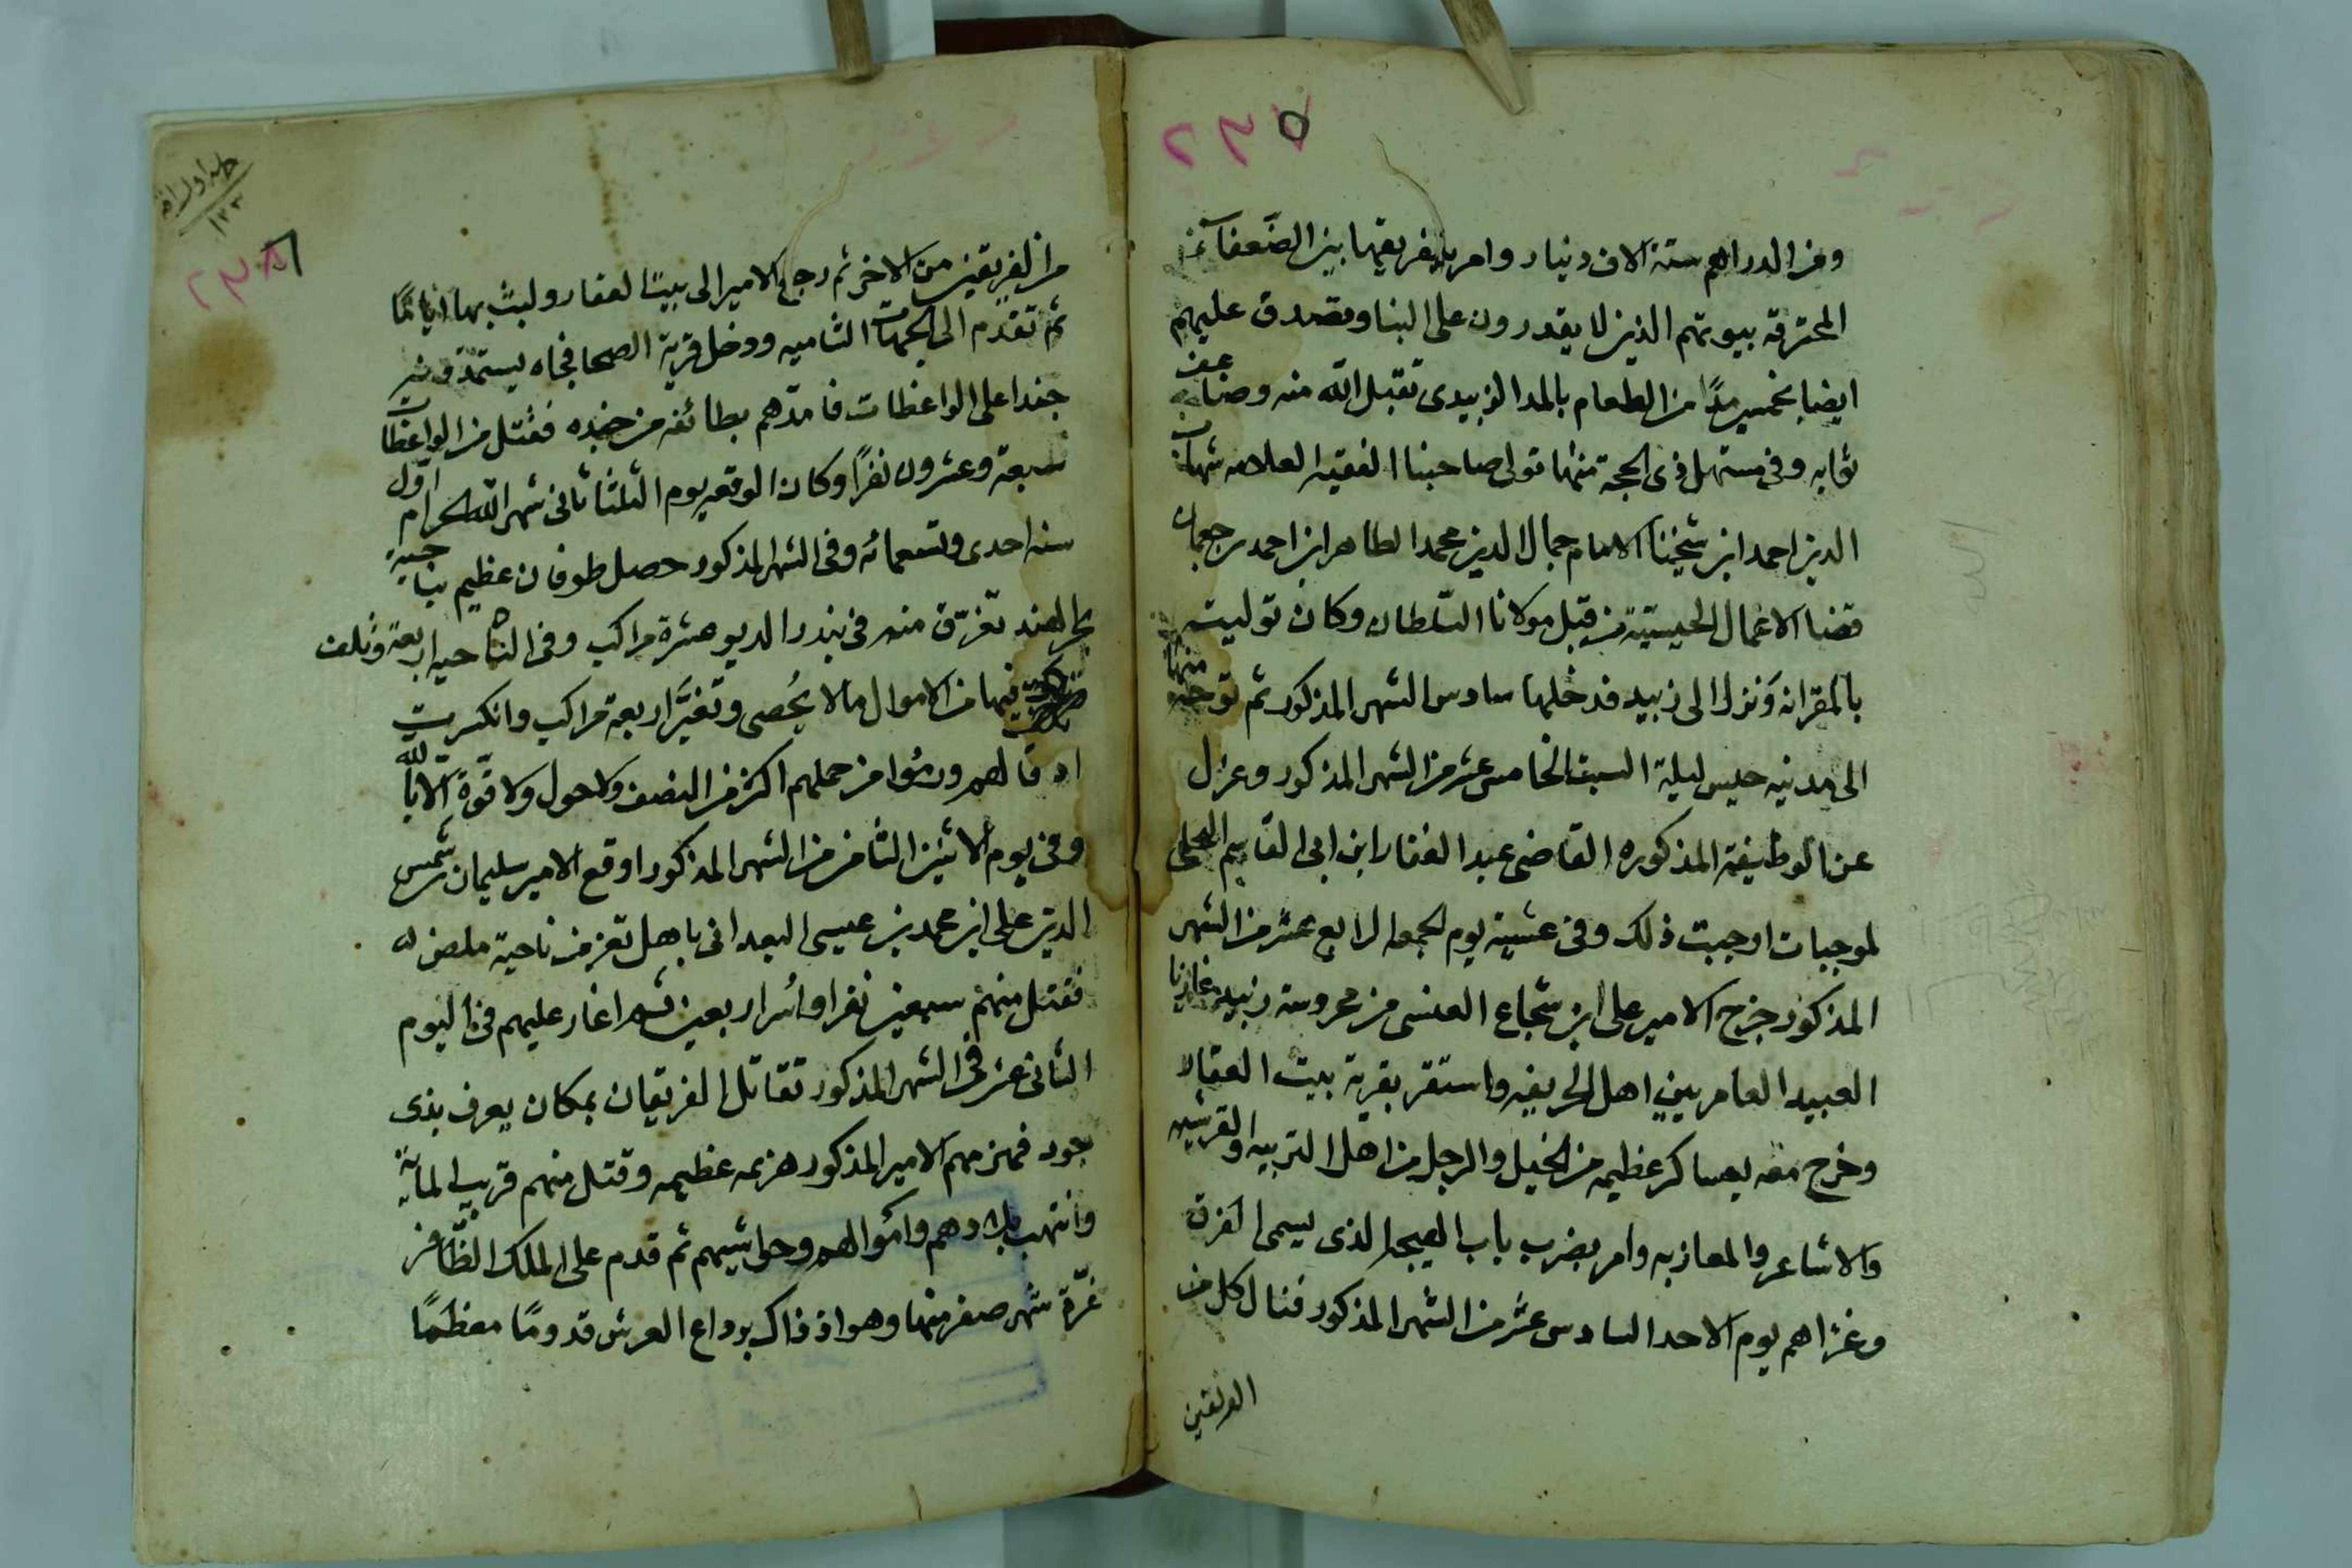 ٢٣٥
ومن الدراهم ستة الاف دينار وامر بتفريقها بين الضعفآء
المحترقه بيوتهم الذين لا يقدرون على البنا وتصدق عليهم
ايضا بخمسين مدًا من الطعام بالمد الزبيدى تقبل الله منه وضاعف
ثوابه وفى مستهل ذى الحجة منها تولى صاحبنا الفقيه العلامه شهاب
الدين احمد ابن شيخنا الامام جمال الدين محمد الطاهر ابن احمد بن جعمان
قضا الاعمال الحيسيّة من قبل مولانا السلطان وكان توليته
بالمقرانه ونزل الى زبيد فدخلها سادس الشهر المذكور ثم توجه منها
الى مدينه حيس ليلة السبت الخامس عشر من الشهر المذكور وعزل
عن الوظيفة المذكوره القاضى عبد الغفار ابن ابى القاسم
لموجبات اوجبت ذلك وفى عشية يوم الجمعه الرابع عشر من الشهر
المذكور خرج الامير على ابن شجاع العنسى من محروسة زبيد غازيا
العبيد العامريين اهل الحريفه واستقر بقرية بيت العقار
وخرج معه بعساكر عظيمه من الخيل والرجل من اهل التربيه والقرشيه
والاشاعر والمعازبه وامر بضرب باب الذى يسمى
وغزاهم يوم الاحد السادس عشر من الشهر المذكور فنال كل من
الفريقين
٢٣٦
من الفريقين من الاخر ثم رجع الامير الى بيت العقار ولبث بها اياما
ثم تقدم الى الجهات الشاميه ودخل قرية الضحا فجاه يستمدونه
جندا على الواعظات فامدهم بطائفه من جنده فقتل من الواعظات
سبعة وعشرون نفرًا وكان الوقعه يوم الثلثا ثانى شهر الله الحرام اول
سنه احدى وتسعمائه وفى الشهر المذكور حصل طوفان عظيم بناحية
بحر الهند تغرّق منه فى بندر الديو عشرة مراكب وفى الناحيه اربعة وتلف
فيها من الاموال ما لا يُحصى وتغيَّر اربعة مراكب وانكسرت
ادقالهم ورموا من حملهم اكثر من النصف ولا حول ولا قوّة الّا بالله
وفى يوم الاثنين الثامن من الشهر المذكور اوقع الامير سليمان شمس
الدين على ابن محمد بن عيسى البعدانى باهل تعز من ناحية
فقتل منهم سبعين نفرا واسر اربعين ثم اغار عليهم فى اليوم
الثانى عشر فى الشهر المذكور تقاتل الفريقان بمكان يعرف بذى
جود فهزمهم الامير المذكور هزيمه عظيمه وقتل منهم قريب الماية
وانتهب بلادهم واموالهم وحواشيهم ثم قدم على الملك الظّافر
غرّة شهر صفر منها وهو اذ ذاك برداع العرش قدومًا معظمًا